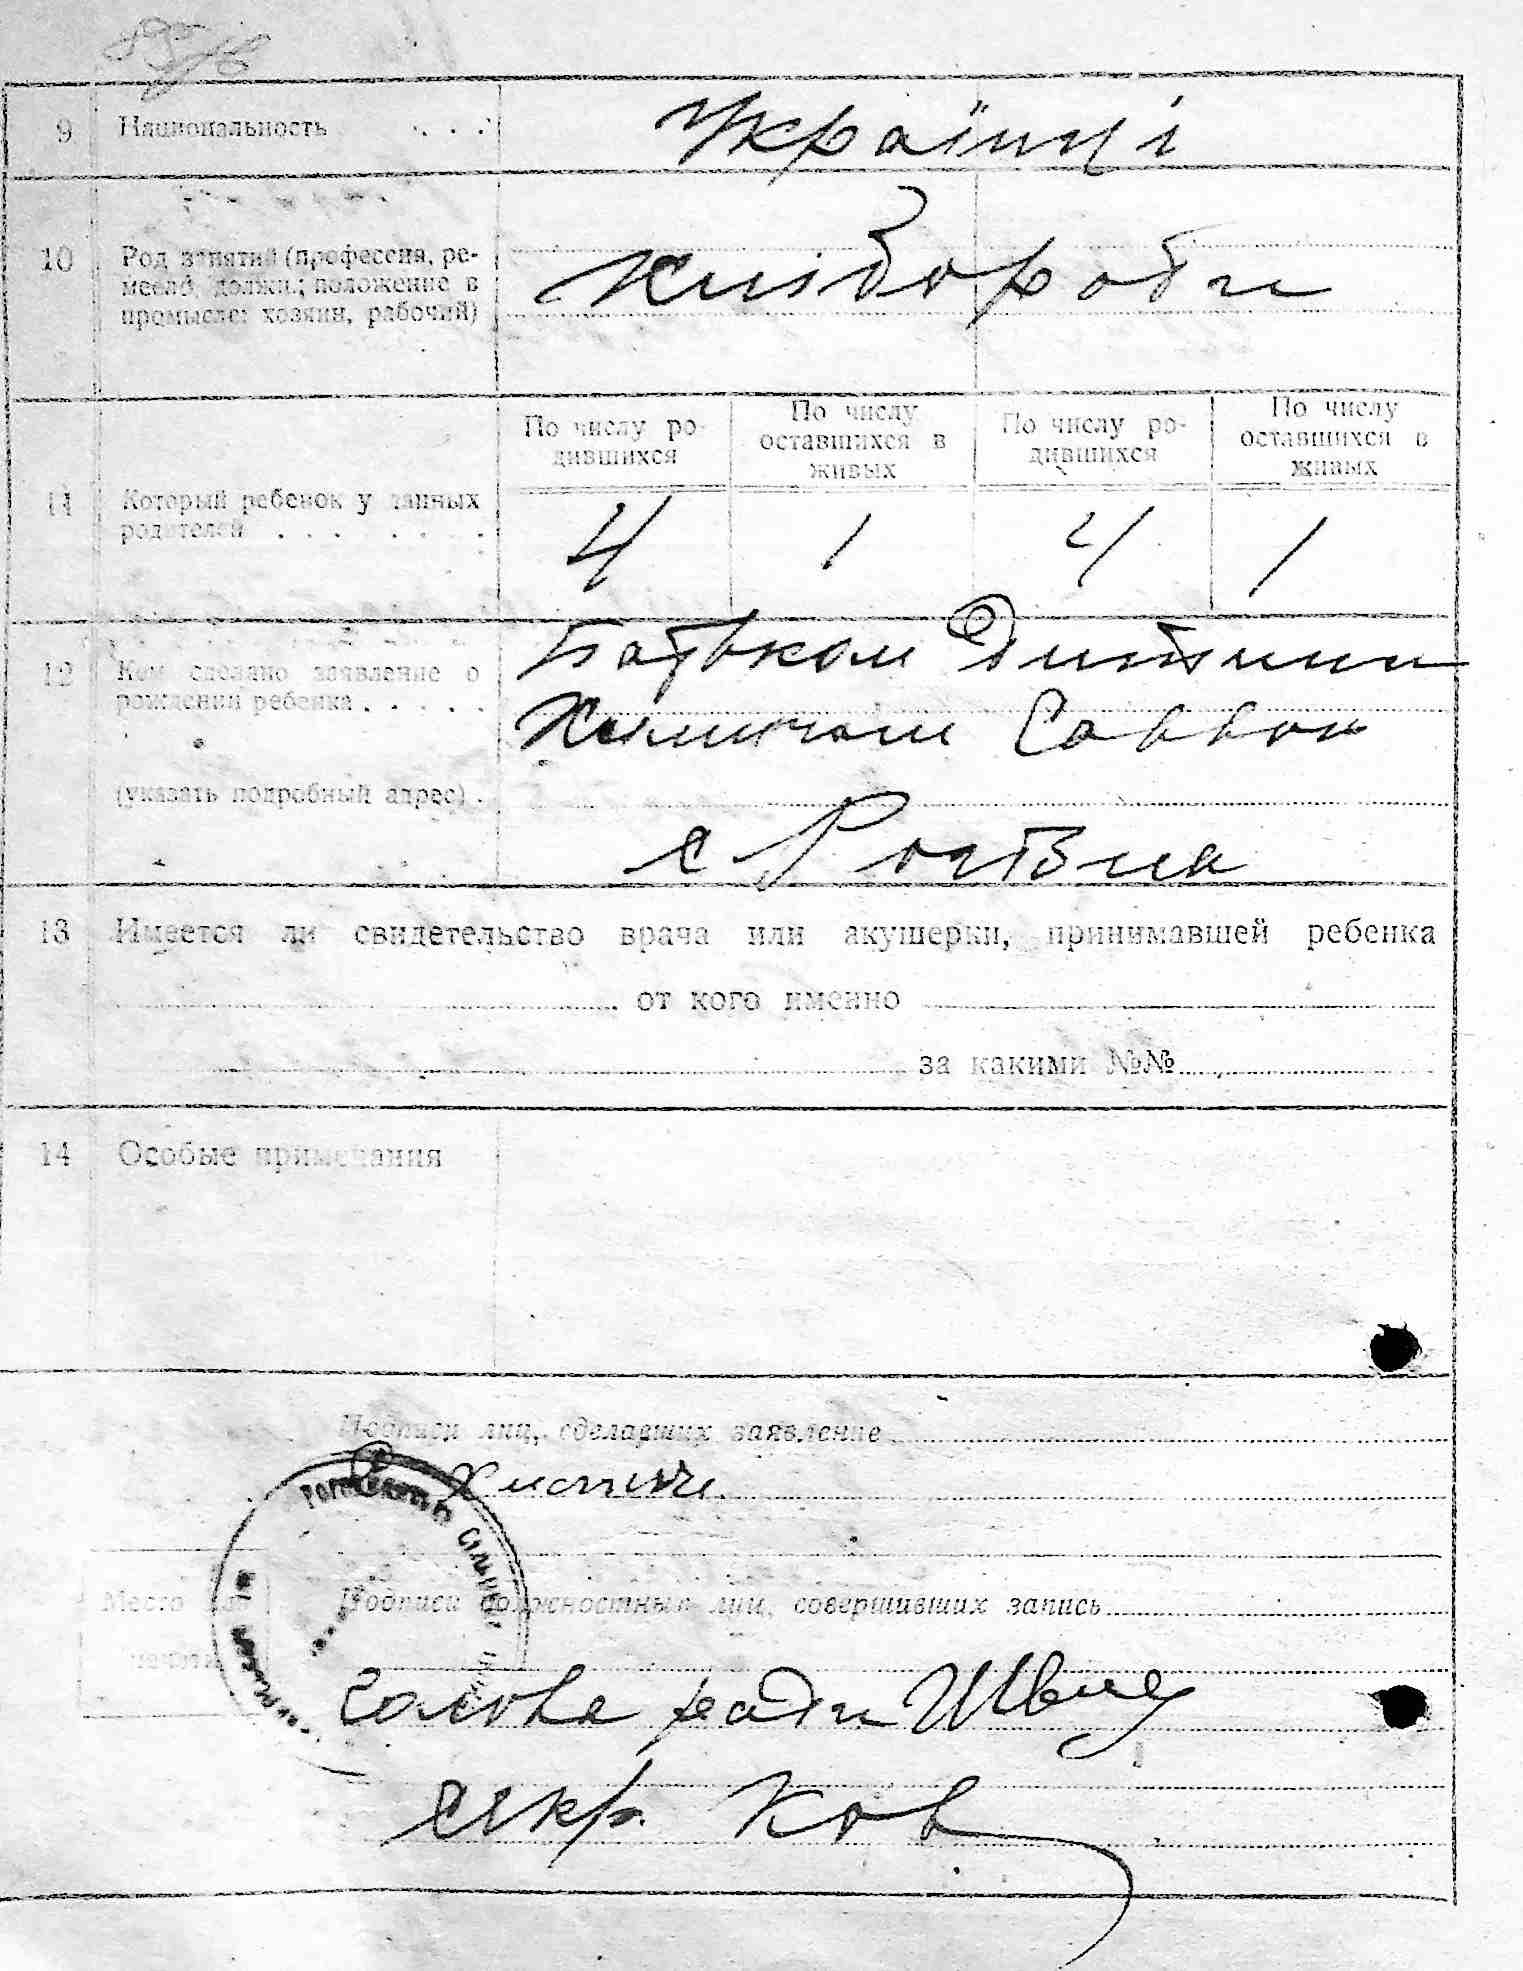 9 Национальность . . .
Українці
10 Род занятий (профессия, ре-
месло, должн.; положение в
промысле: хозяин, рабочий)
Хлібороби
По числу ро-
дившихся
По числу
оставшихся в
живых
По числу ро-
дившихся
По числу
оставшихся в
живых
11 Который ребенок у данных
родителей . . . . . . .
4 1 4 1
12 Кем сделано заявление о
рождении ребенка . . . . .
(указать подробный адрес) .
Батьком Дитини
Саввою
с
13 Имеется ли свидетельство врача или акушерки, принимавшей ребенка
от кого именно
за какими №№
14 Особые примечания
Подписи лиц, сделавших заявление
Место для
печати
Подписи должностных лиц, совершивших запись
Голова ради Швец
секр. Ков